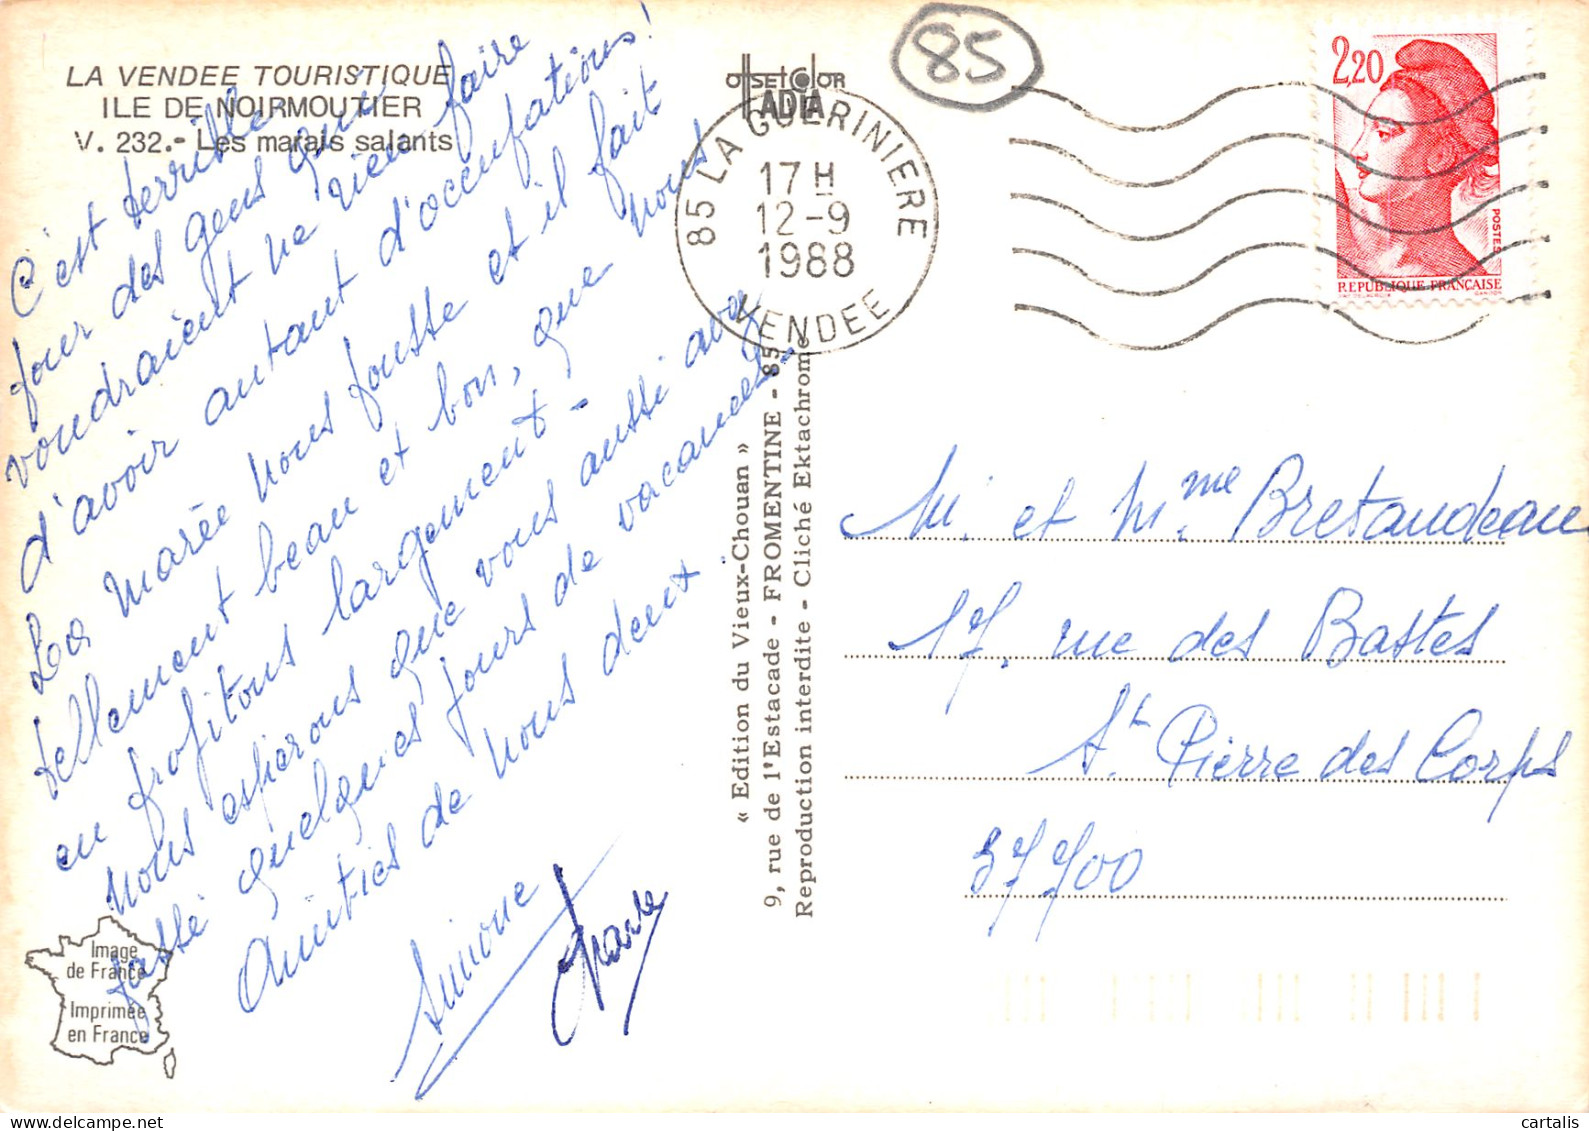 LA VENDEE TOURISTIQUE
ILE DE NOIRMOUTIER
V. 232.- Les marais salants
C'est terrible
pour des gens qui
voudraient ne rien faire
d'avoir autant d'occupations!
La marée nous pousse et il fait
tellement beau et bon, que nous
en profitons largement -
Nous espérons que vous aussi avez
passé quelques jours de vacances -
Amitiés de nous deux.
Simone
Image
de France
Imprimée
en France
« Edition du Vieux-Chouan »
9, rue de l'Estacade - FROMENTINE - 85
Reproduction interdite - Cliché Ektachrome
OFFSET COLOR
ADIA
85
85 LA GUERINIERE
17 H
12-9
1988
VENDEE
2,20
POSTES
REPUBLIQUE FRANÇAISE
M. et Mme Bretaudeau
17, rue des Bastes
St Pierre des Corps
37700
cartalis